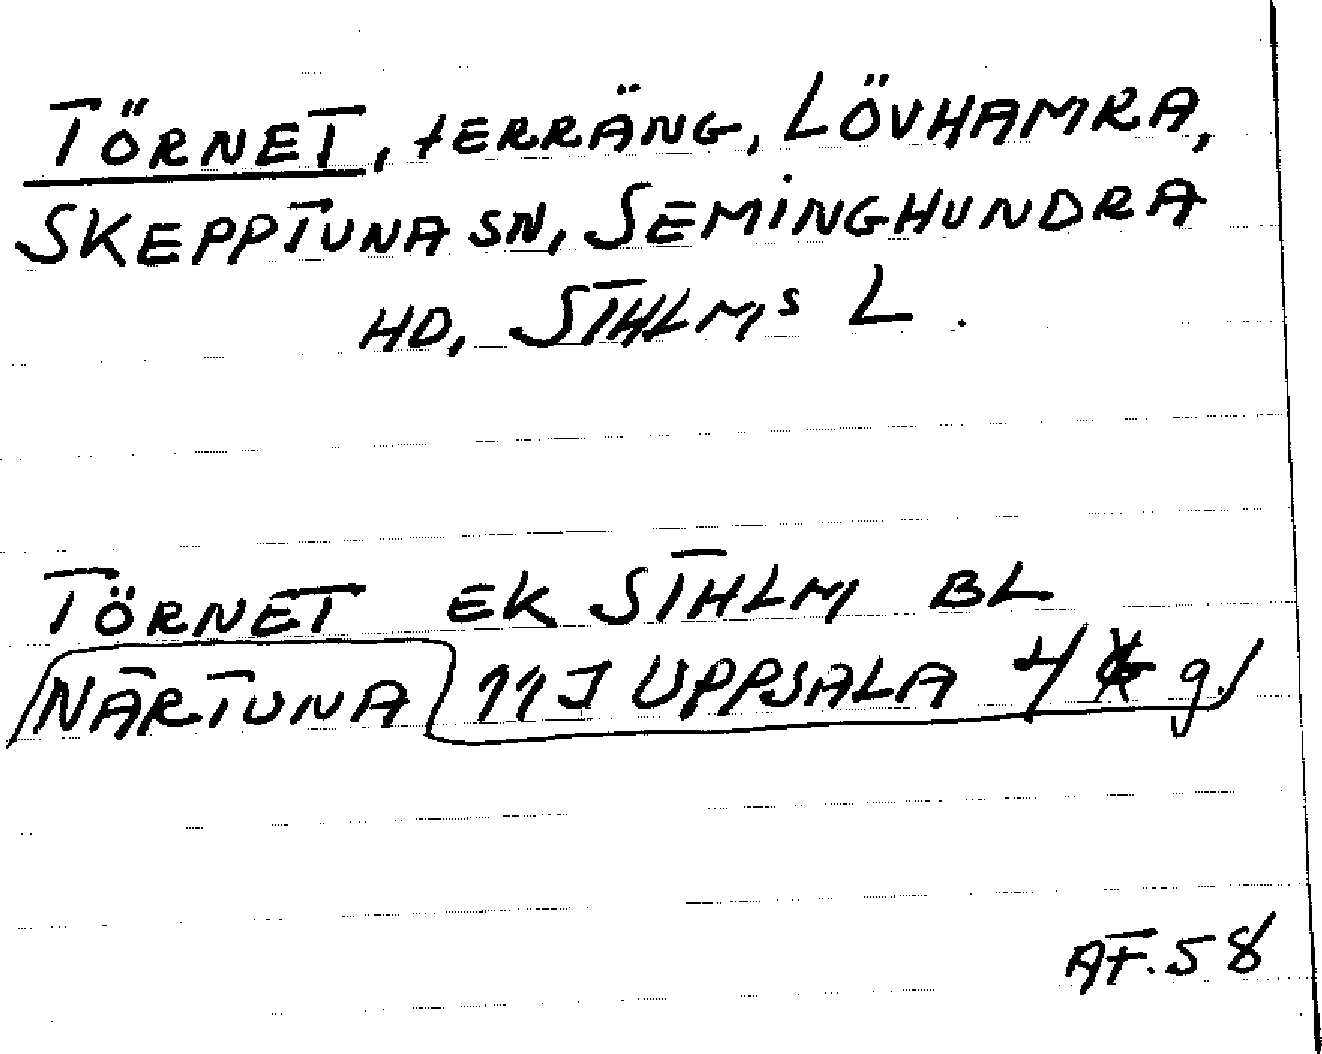 TÖRNET, tERRÄNG, LÖVHAMRA,
SKEPPTUNA SN, SEMINGHUNDRA
HD, STHLMS L.
TÖRNET EK STHLM BL
NÄRTUNA 11J UPPSALA 4 g
AF.58